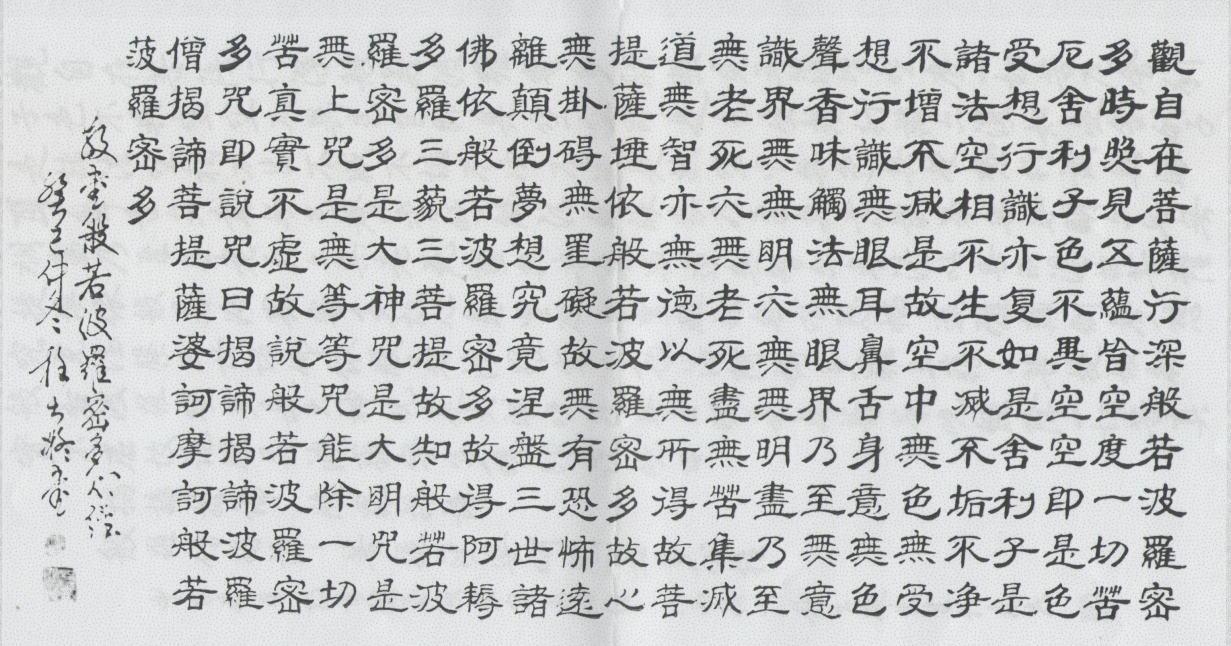 觀自在菩薩行深般若波羅密
多時照見五蘊皆空度一切苦
厄舍利子色不異空空即是色
受想行識亦复如是舍利子是
諸法空相不生不滅不垢不净
不增不减是故空中無色無受
想行識無眼耳鼻舌身意無色
聲香味觸法無眼界乃至無意
識界無無明六無無明盡乃至
無老死六無老死盡無苦集滅
道無智亦無德以無所得故菩
提薩埵依般若波羅密多故心
無掛碍無罣礙故無有恐怖遠
離顛倒夢想究竟涅盤三世諸
佛依般若波羅密多故得阿耨
多羅三藐三菩提故知般若波
羅密多是大神咒是大明咒是
無上咒是無等等咒能除一切
苦真實不虛故說般若波羅密
多咒即說咒曰揭諦揭諦波羅
僧揭諦菩提薩婆訶摩訶般若
菠羅密多
敬書般若波羅密多心經
癸巳仲冬